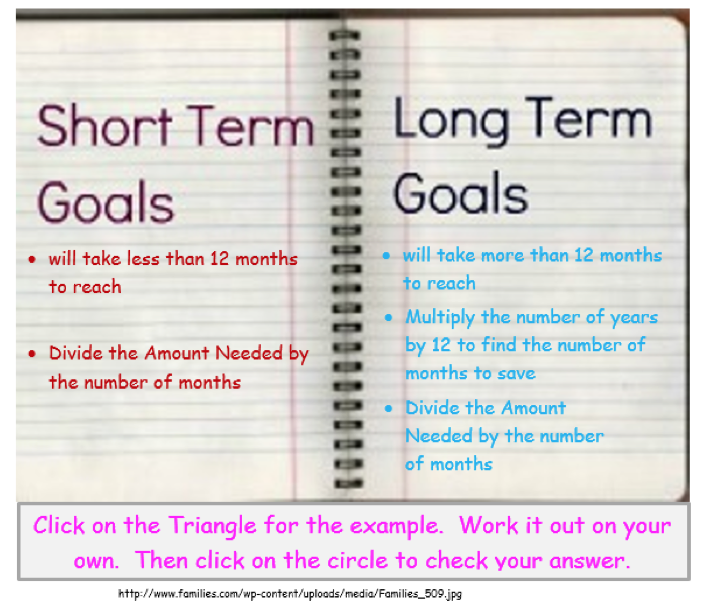 Short Term
Goals
• will take less than 12 months
to reach
• Divide the Amount Needed by
the number of months
Long Term
Goals
• will take more than 12 months
to reach
• Multiply the number of years
by 12 to find the number of
months to save
• Divide the Amount
Needed by the number
of months
Click on the Triangle for the example.  Work it out on your
own.  Then click on the circle to check your answer.
http://www.families.com/wp-content/uploads/media/Families_509.jpg